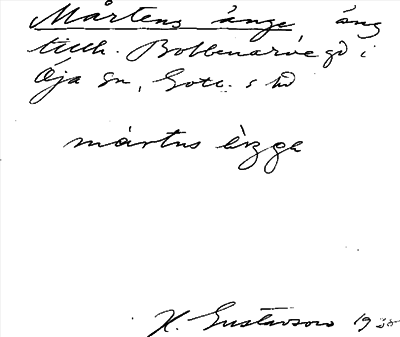 Mårtens änge äng
tillh. Bobbenarve gd i
Öja sn, Gotl. s hd
mártns èŋgə
H. Gustavson 19